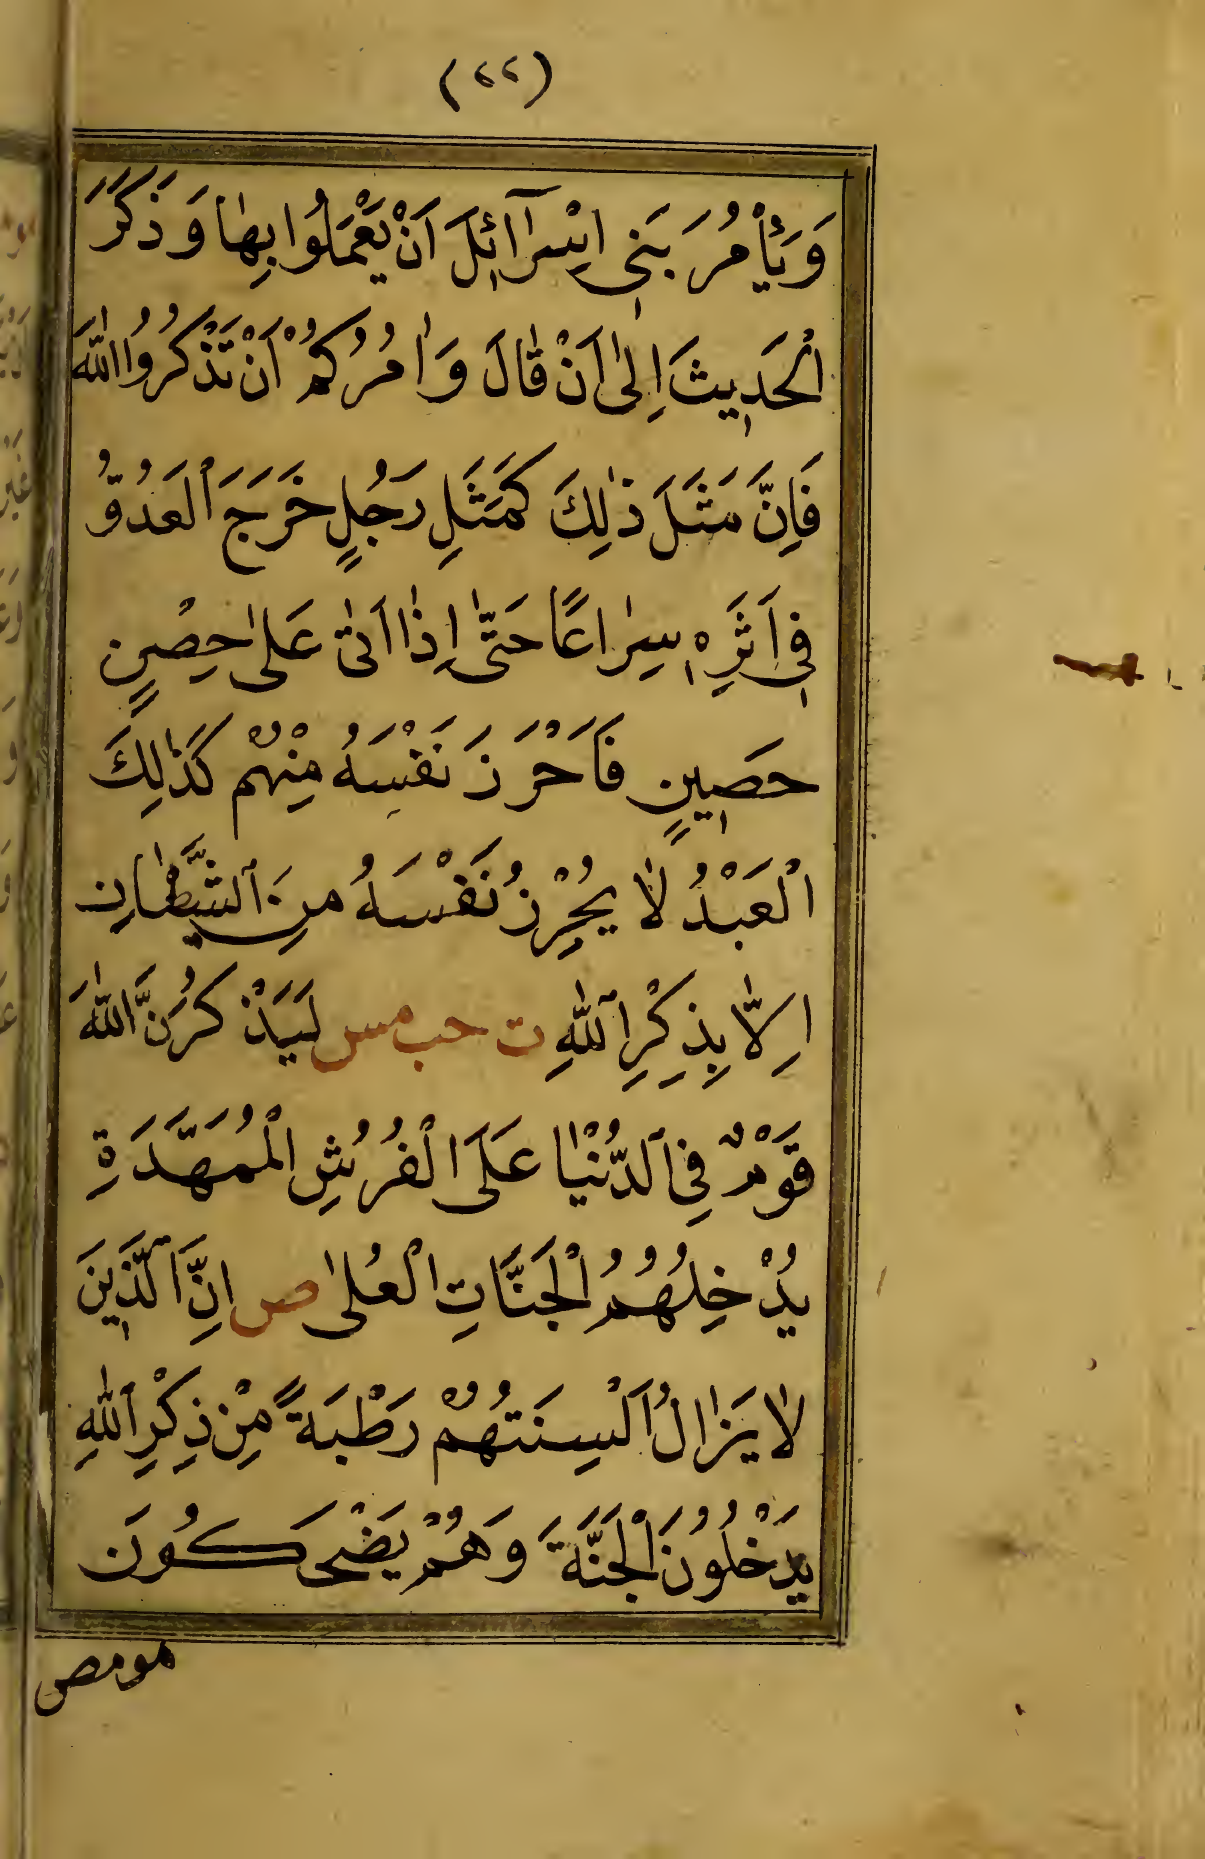 (٢٢)
وَيَأْمُرَ بَنِى اِسْرَآئِلَ اَنْ يَعْمَلُوا بِهَا وَذَكَرَ
الْحَدِيثَ اِلٰى اَنْ قَالَ وَاٰمُرُكُمْ اَنْ تَذْكُرُوا اللّٰهَ
فَاِنَّ مَثَلَ ذٰلِكَ كَمَثَلِ رَجُلٍ خَرَجَ الْعَدُوُّ
فِى اَثَرِهِ سِرَاعًا حَتّٰى اِذَا اَتٰى عَلٰى حِصْنٍ
حَصِينٍ فَاَحْرَزَ نَفْسَهُ مِنْهُمْ كَذٰلِكَ
الْعَبْدُ لَا يُحْرِزُ نَفْسَهُ مِنَ الشَّيْطَانِ
اِلَّا بِذِكْرِ اللّٰهِ ت حب مس لَيَذْكُرَنَّ اللّٰهَ
قَوْمٌ فِى الدُّنْيَا عَلَى الْفُرُشِ الْمُمَهَّدَةِ
يُدْخِلُهُمُ الْجَنَّاتِ الْعُلٰى ص اِنَّ الَّذِينَ
لَا يَزَالُ اَلْسِنَتُهُمْ رَطْبَةً مِنْ ذِكْرِ اللّٰهِ
يَدْخُلُونَ الْجَنَّةَ وَهُمْ يَضْحَكُونَ
مومص